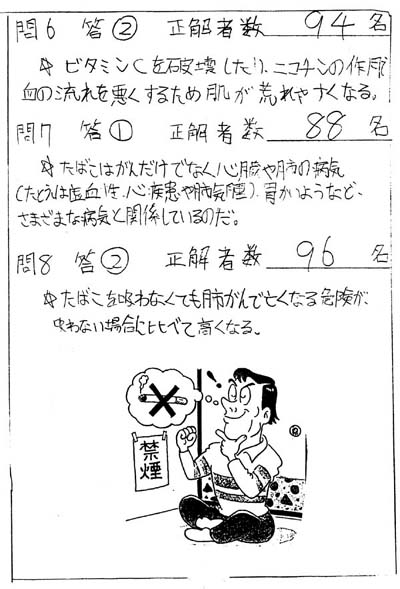 問6 答② 正解者数 94名
☆ ビタミンCを破壊したり、ニコチンの作用
血の流れを悪くするため肌が荒れやすくなる。
問7 答① 正解者数 88名
☆たばこはがんだけでなく心臓や肺の病気
(たとえば虚血性心疾患や肺気腫)、胃かいようなど、
さまざまな病気と関係しているのだ。
問8 答② 正解者数 96名
☆たばこを吸わなくても肺がんで亡くなる危険が、
吸わない場合に比べて高くなる。
!!
禁煙